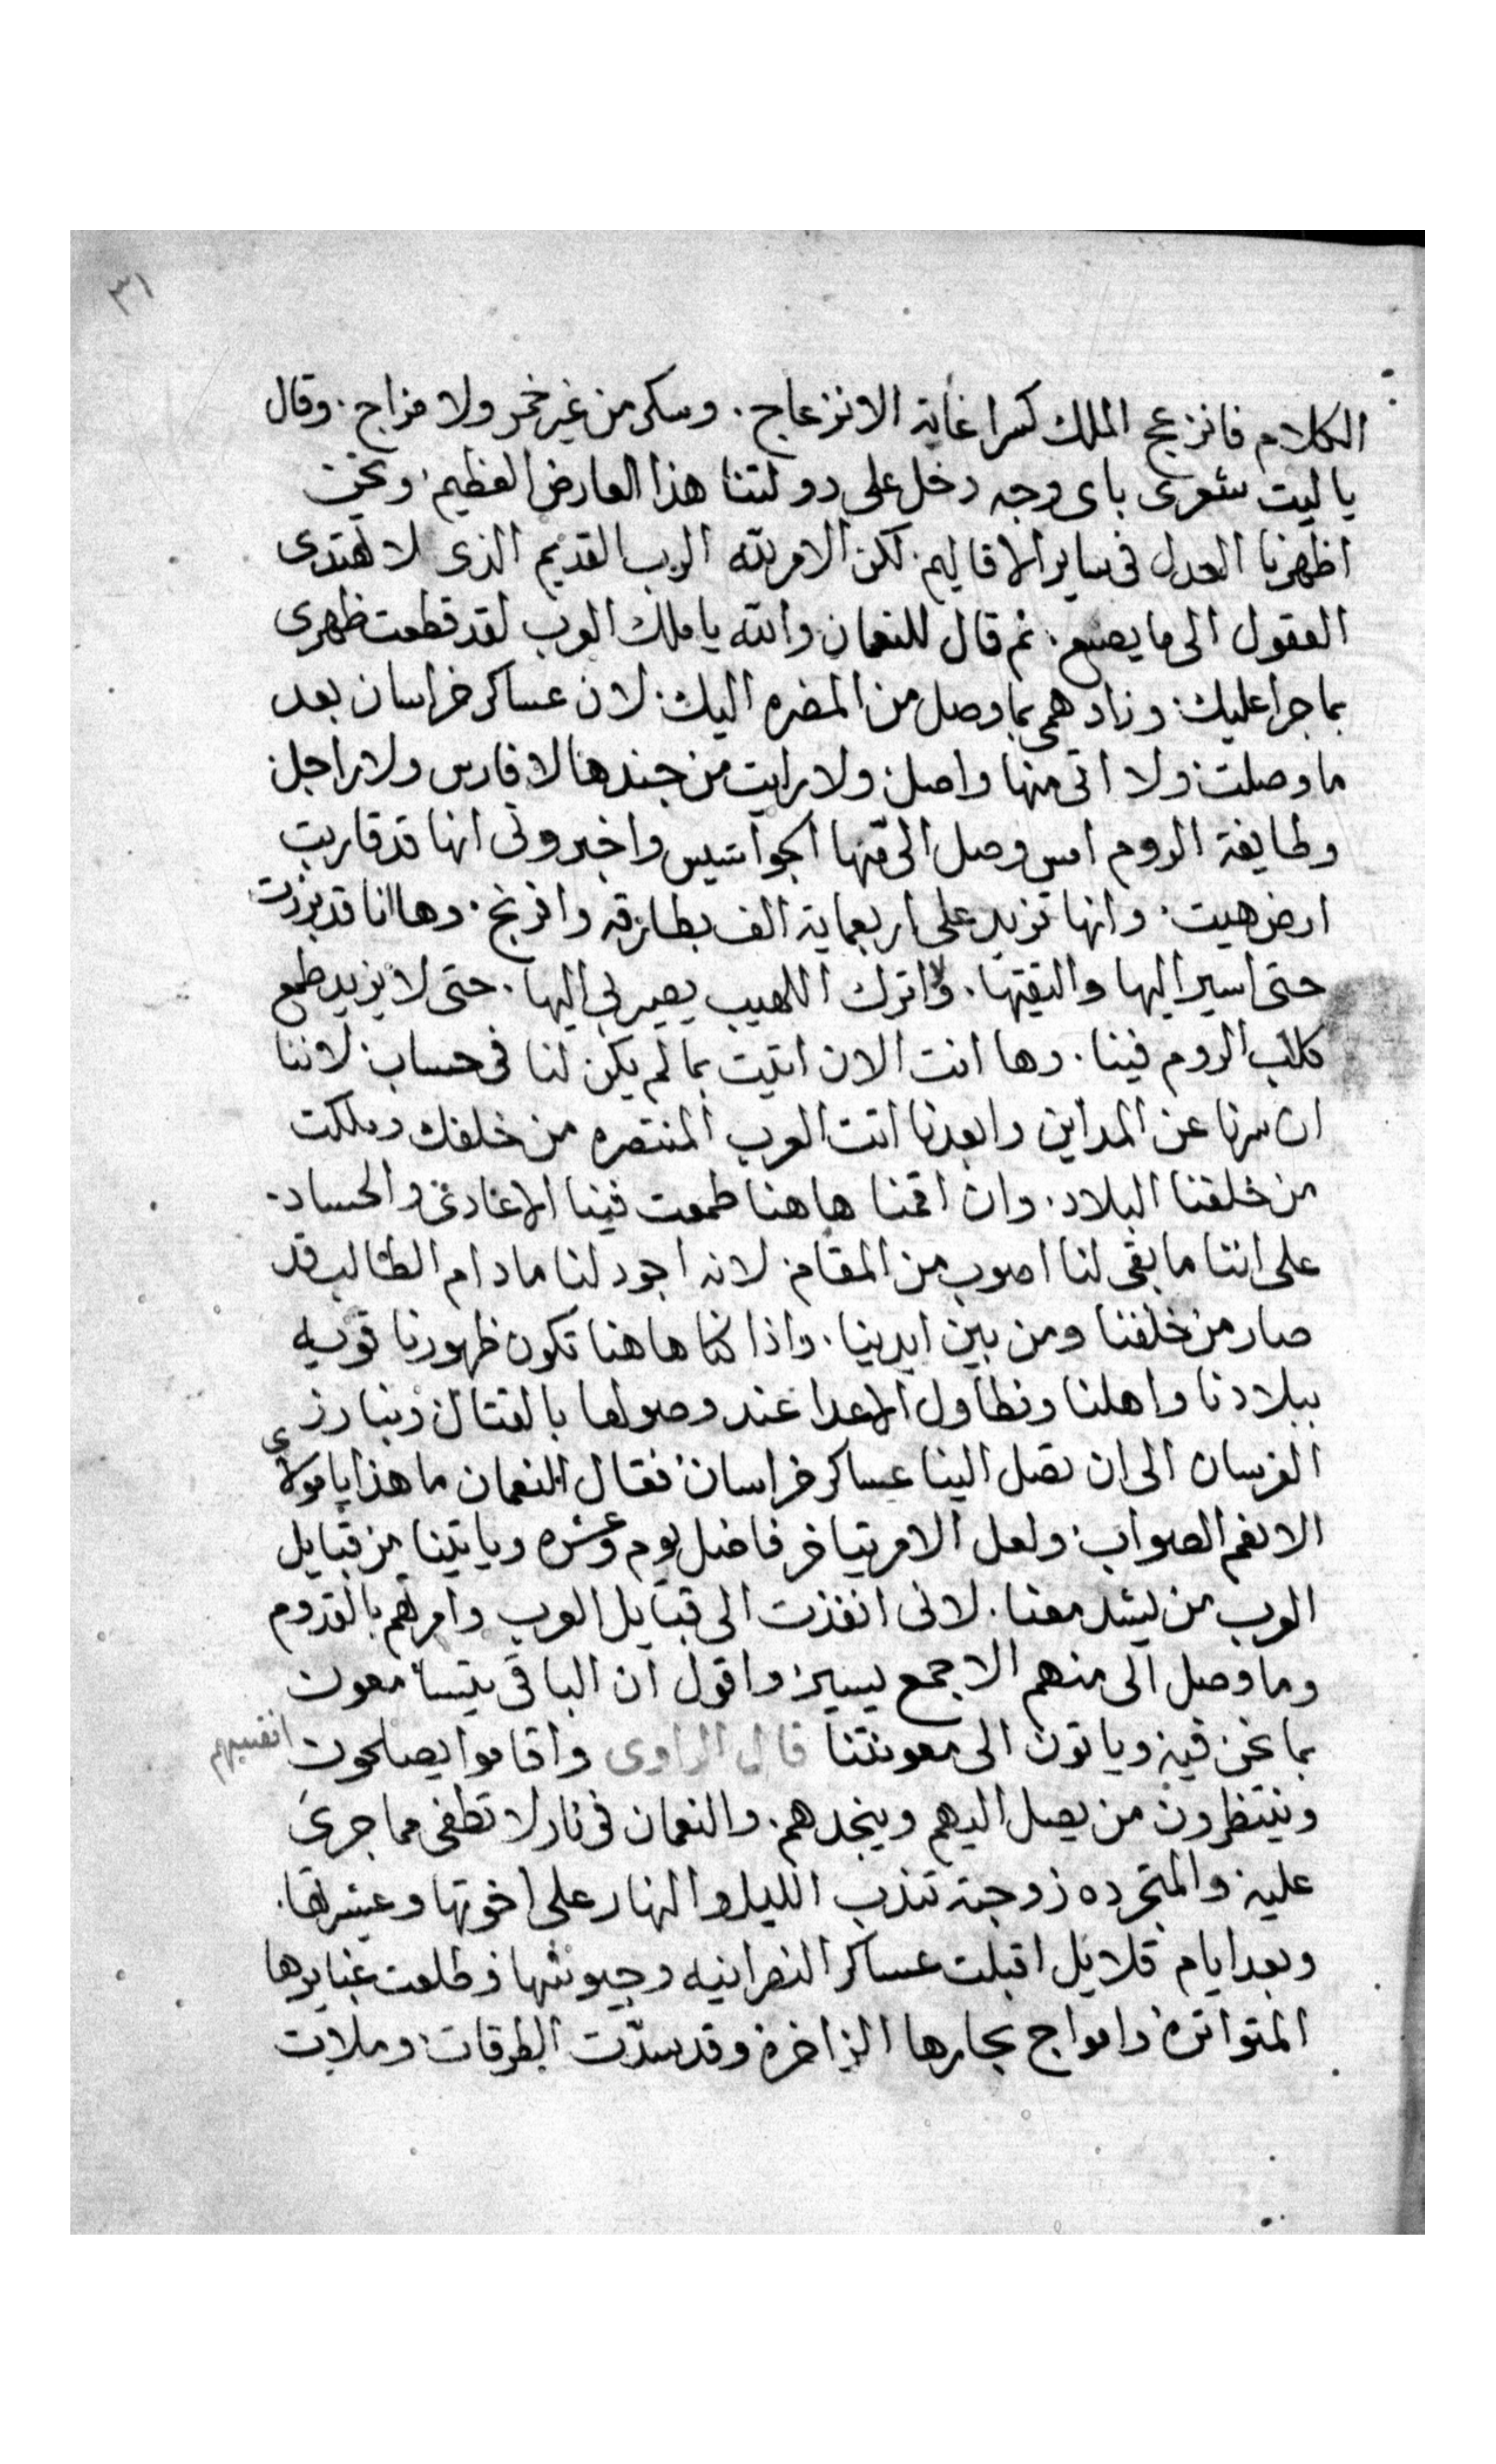 ٣١
الكلام فانزعج الملك كسرا غاية الانزعاج. وسكر من غير خمر ولا مزاج. وقال
يا ليت شعرى باى وجه دخل على دولتنا هذا العارض العظيم. ونحن
اظهرنا العدل فى ساير الاقاليم. لكن الامر لله الرب القديم الذى لا تهتدى
العقول الى ما يصنع. ثم قال للنعمان والله يا ملك العرب لقد قطعت ظهرى
بما جرا عليك. وزاد همى بما وصل من المضره اليك. لان عساكر خراسان بعد
ما وصلت ولا اتى منها واصل. ولا رايت من جندها لا فارس ولا راجل.
وطايفة الروم امس وصل الى منها الجواسيس واخبرونى انها قد قاربت
ارض هيت. وانها تزيد على اربعماية الف بطارقه وافرنج. وها انا قد برزت
حتى اسير اليها والتقيها. ولا اترك اللهيب يصير لى اليها. حتى لا يزيد طمع
كلاب الروم فينا. وها انت الان اتيت بما لم يكن لنا فى حساب. لاننا
ان سرنا عن المداين وابعدنا اتت العرب المنتصره من خلفك وملكت
من خلفنا البلاد. وان اقمنا هاهنا طمعت فينا الاعادى والحساد.
على اننا ما بقى لنا اصوب من المقام. لانه اجود لنا مادام الطالب قد
صار من خلفنا ومن بين ايدينا. واذا كنا هاهنا تكون ظهورنا قويه
ببلادنا واهلنا ونطاول الاعدا عند وصولها بالقتال ونبارز
الفرسان الى ان تصل الينا عساكر خراسان. فقال النعمان ما هذا يا مولاى
الا نعم الصواب. ولعل الامر يتاخر فاضل يوم وعشره وياتينا من قبايل
العرب من يشد معنا. لانى انفذت الى قبايل العرب وامرتهم بالقدوم
وما وصل الى منهم الا جمع يسير. واقول ان الباقى يتسامعون
بما نحن فيه. وياتون الى معونتنا قال الراوى واقاموا يصلحون انفسهم
وينتظرون من يصل اليهم وينجدهم. والنعمان فى نار لا تطفى مما جرى
عليه. والمتجرده زوجته تندب الليل والنهار على اخوتها وعشيرتها.
وبعد ايام قلايل اقبلت عساكر النصرانيه وجيوشها وطلعت غبايرها
المتواتره وامواج بحارها الزاخرة وقد سدّت الطرقات. وملات